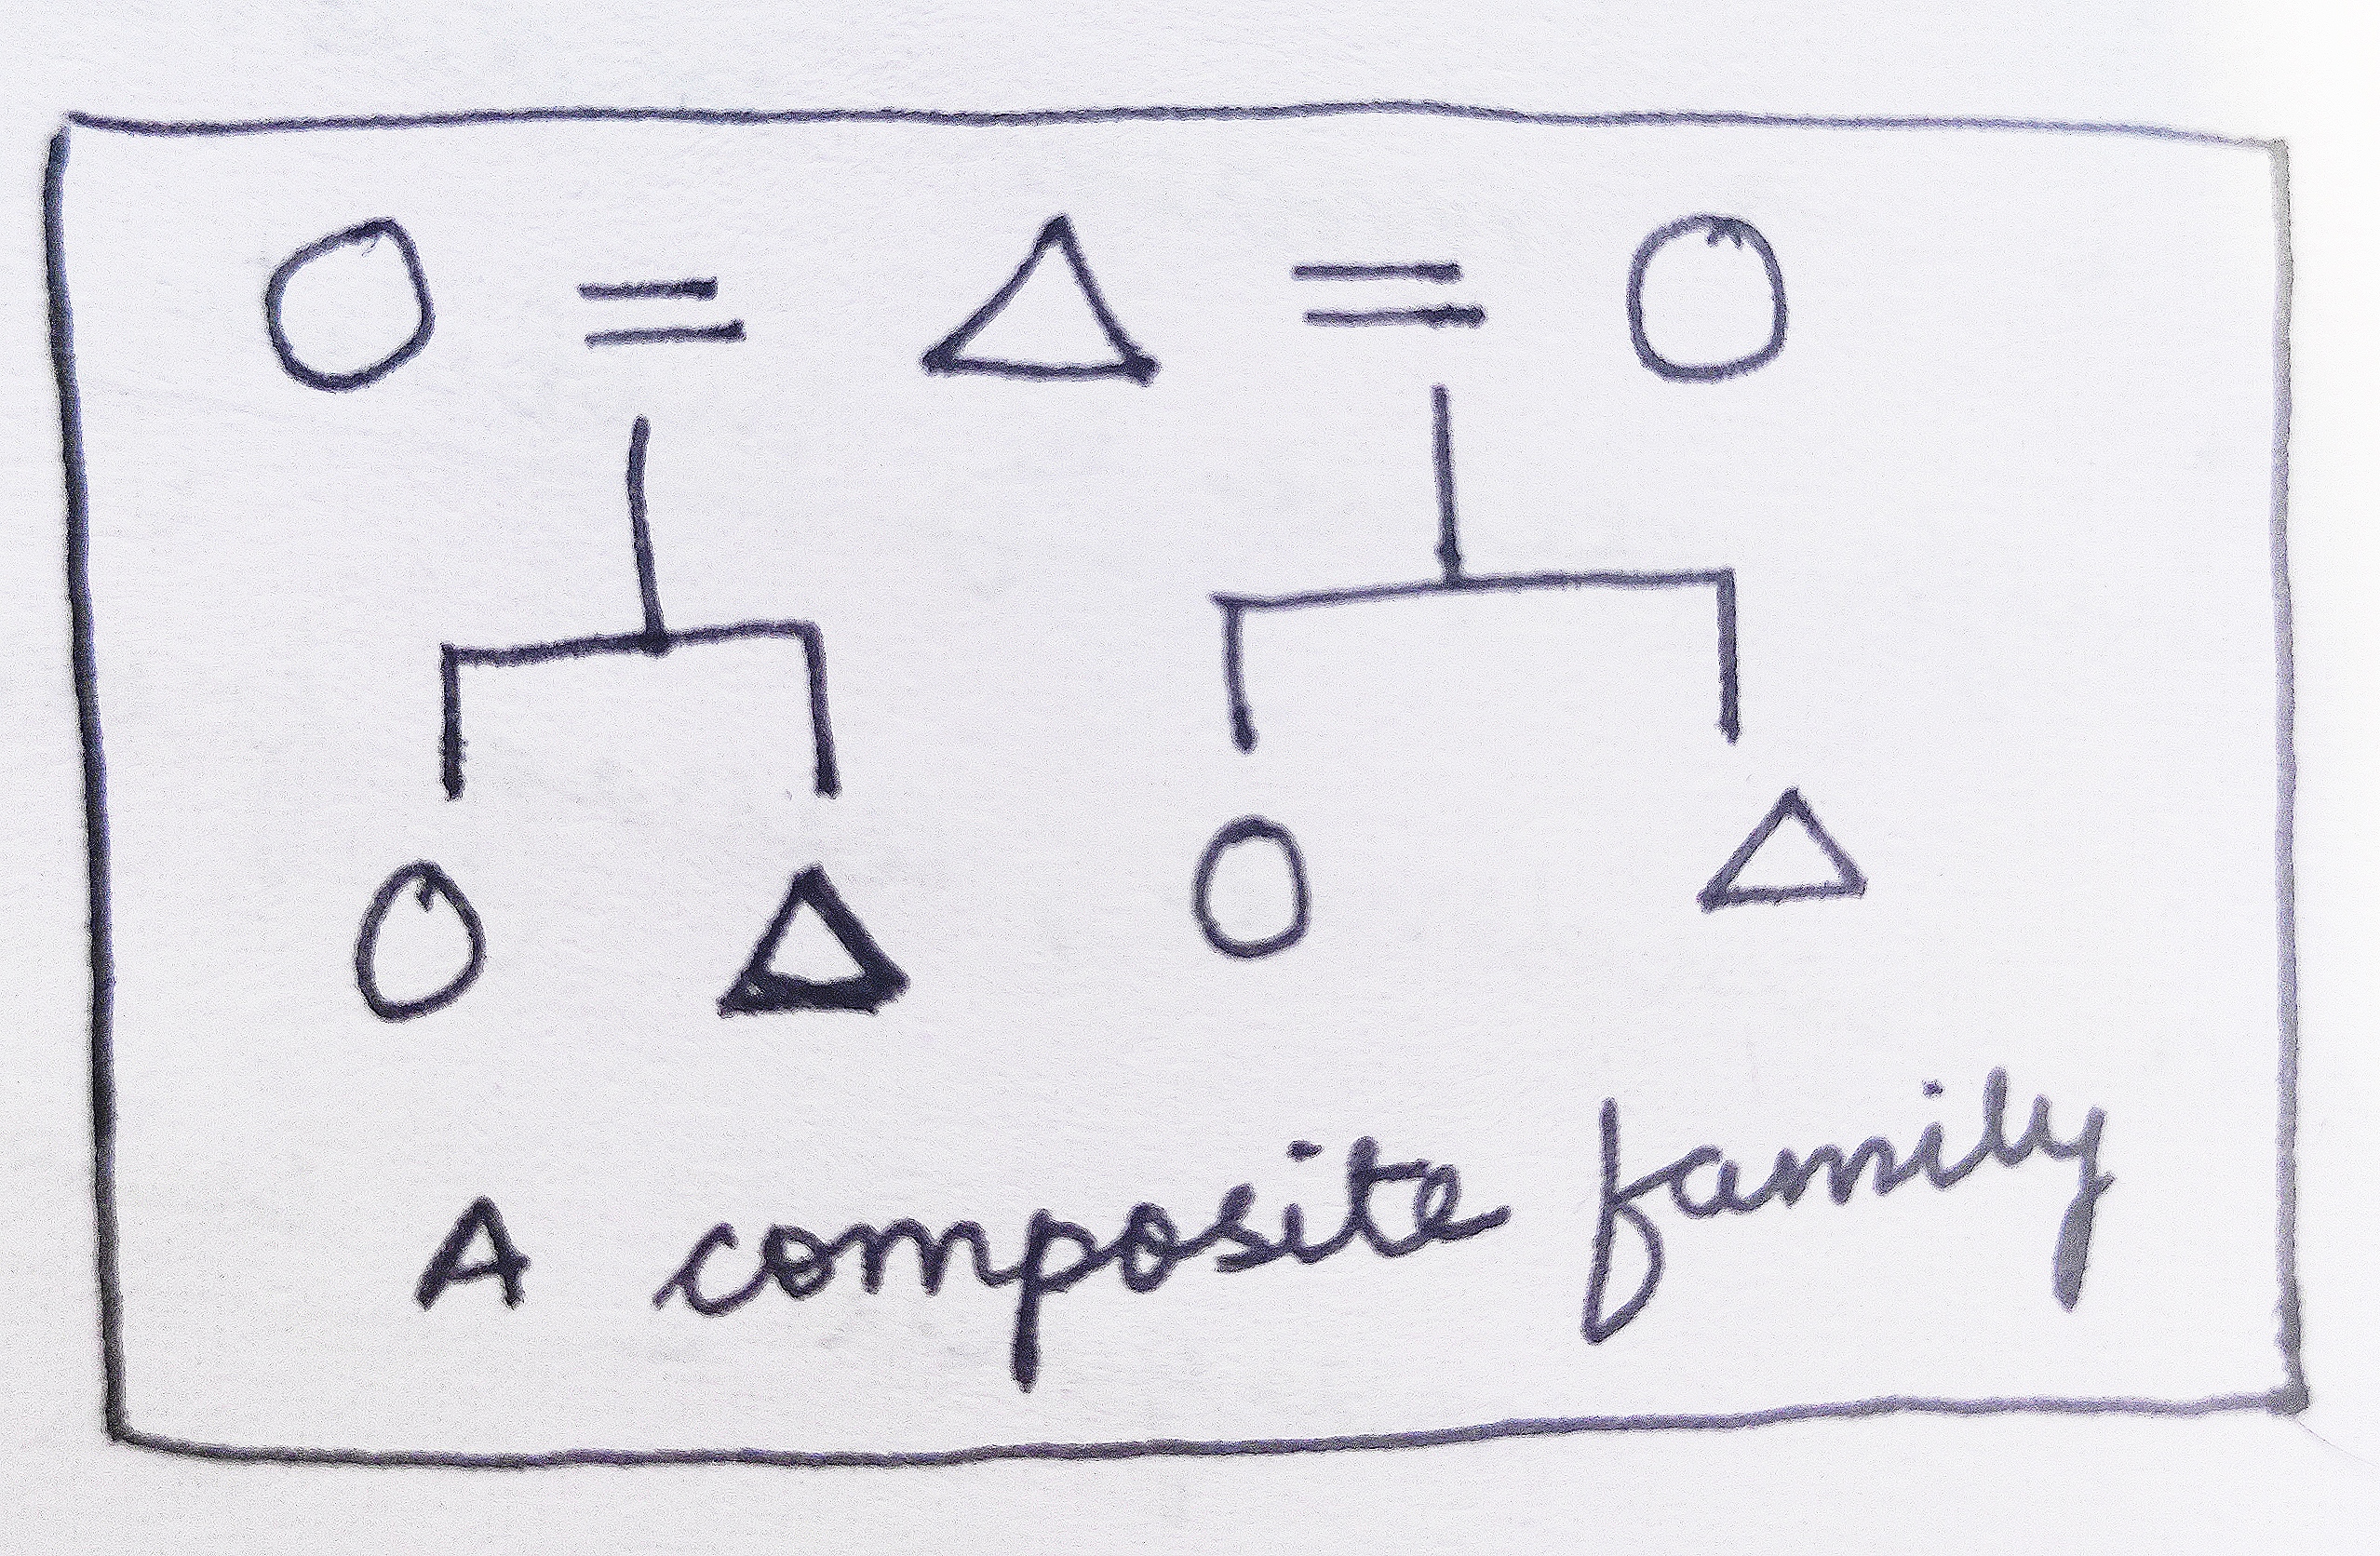 A composite family